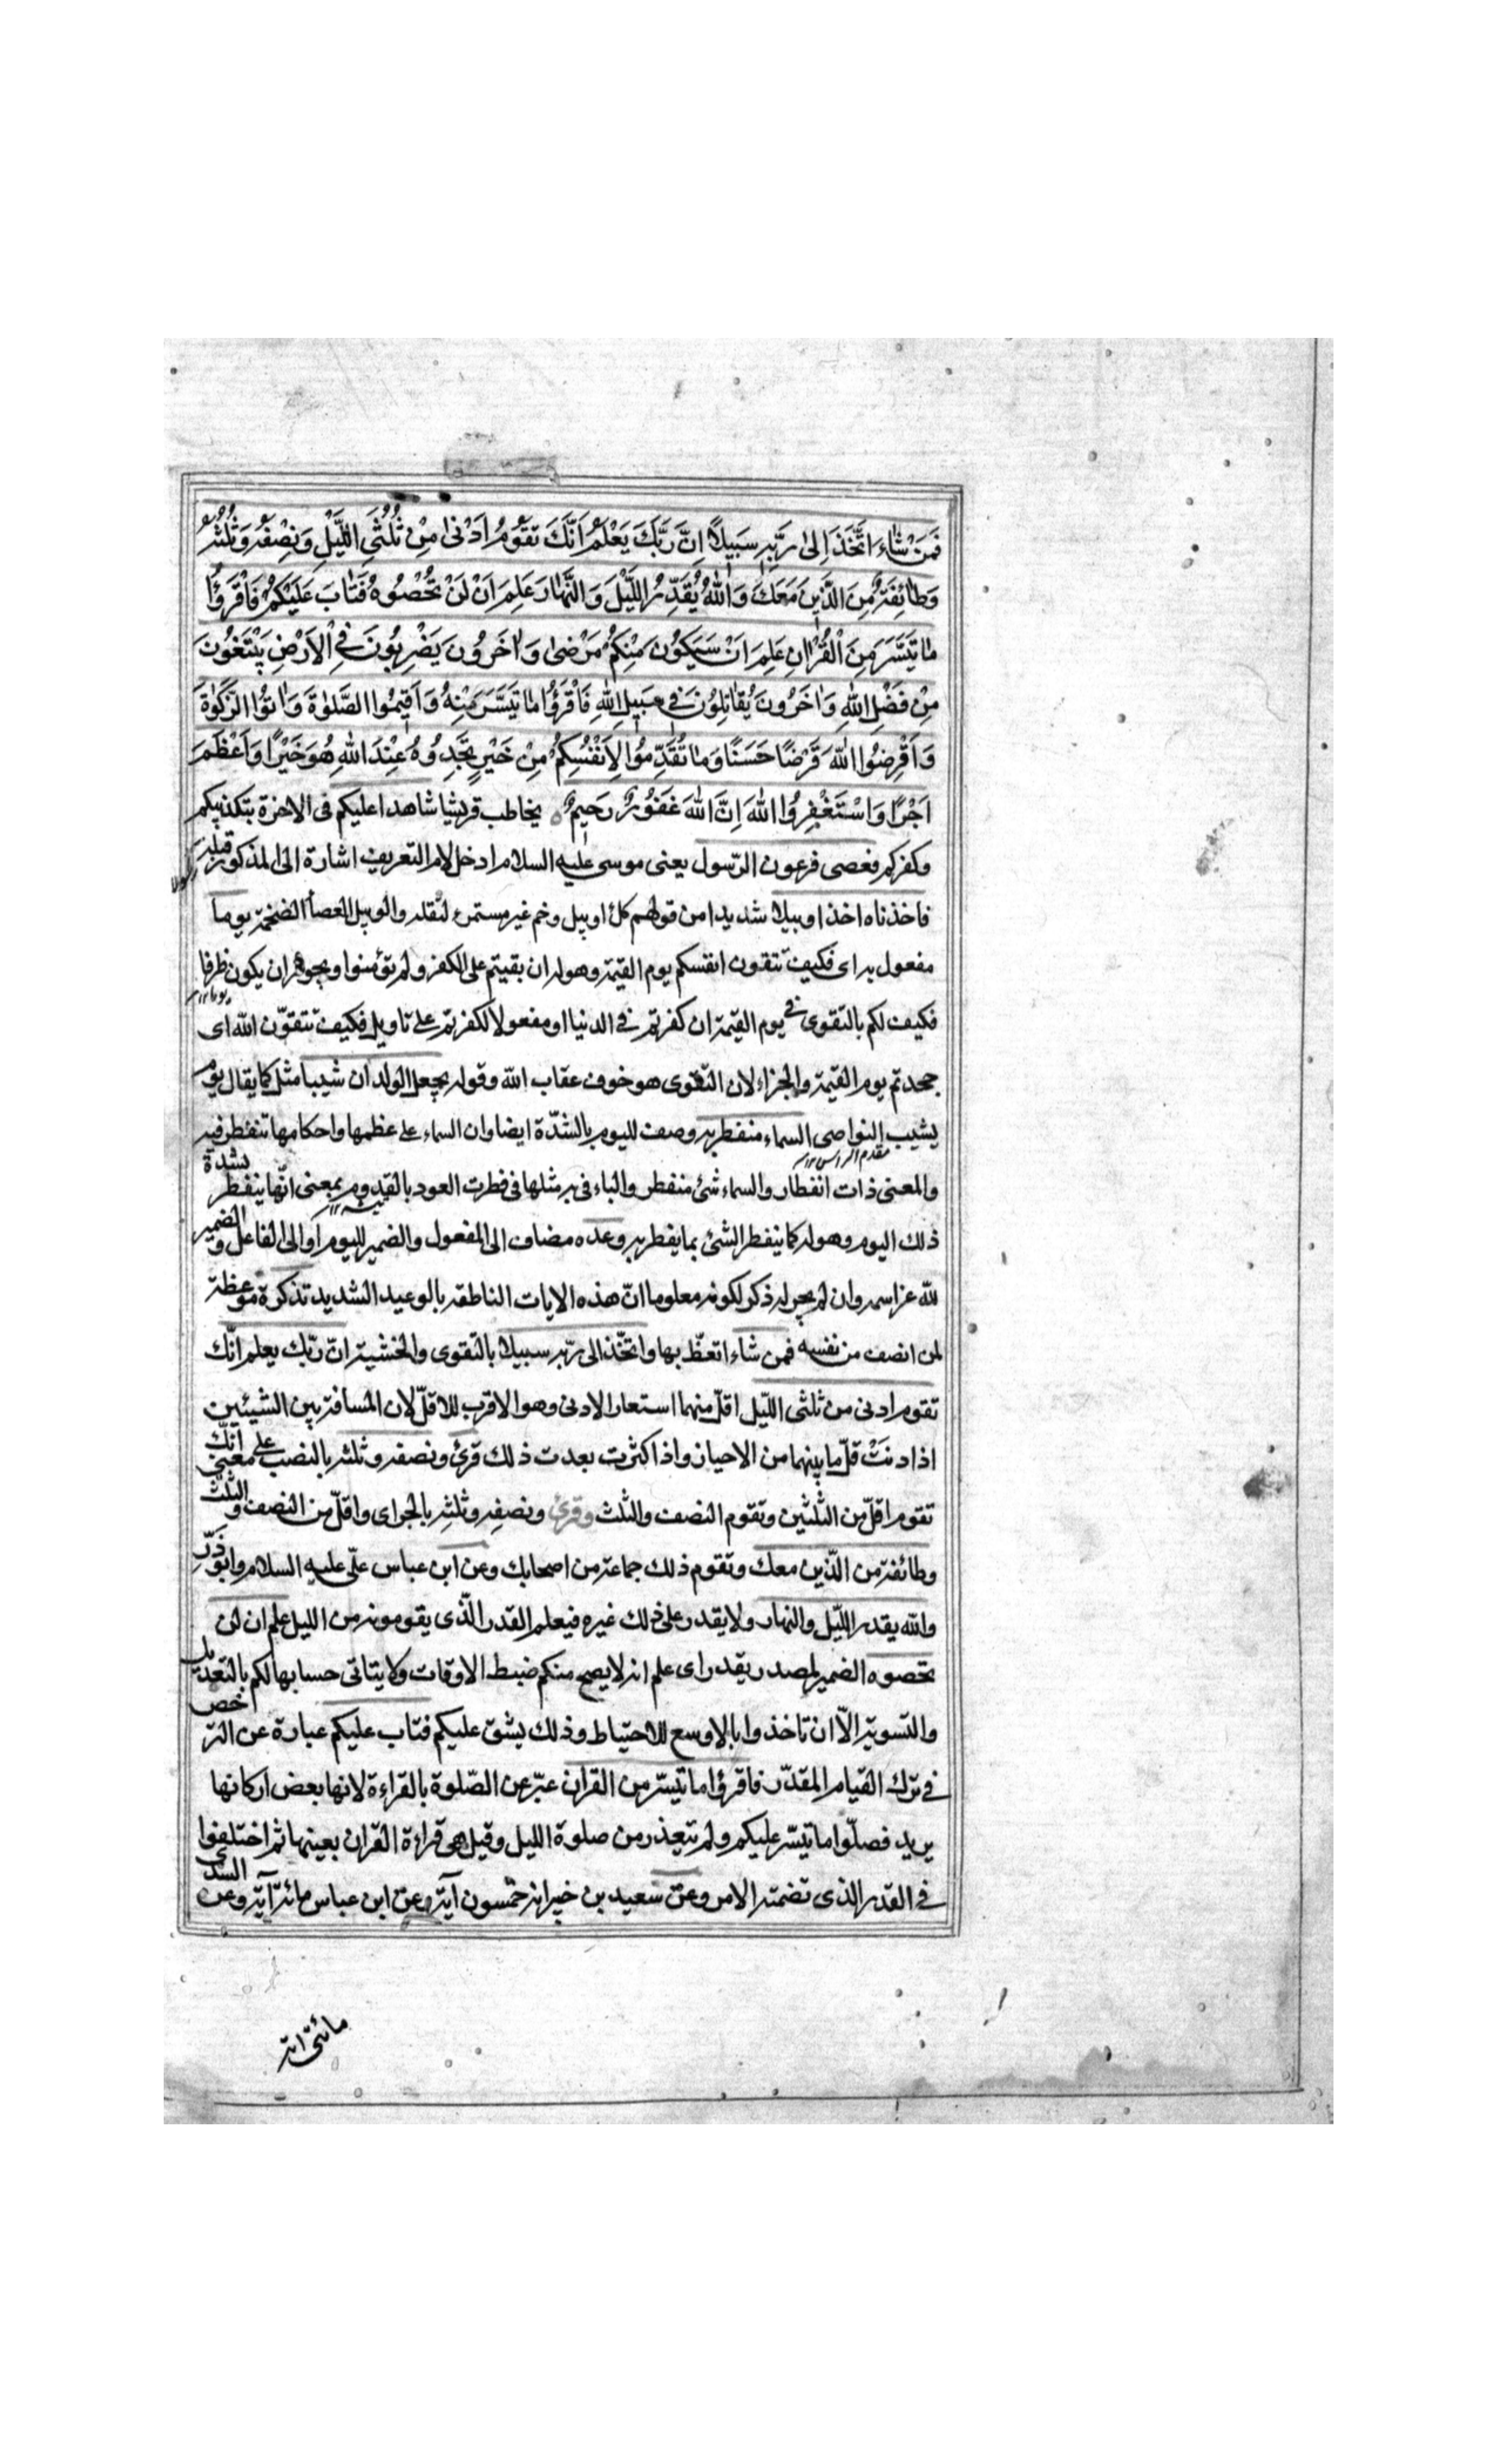 فَمَنْ شَاءَ اتَّخَذَ اِلىٰ رَبِّهِ سَبِيلًا اِنَّ رَبَّكَ يَعْلَمُ اَنَّكَ تَقُومُ اَدْنىٰ مِنْ ثُلُثَيِ اللَّيْلِ وَنِصْفَهُ وَثُلُثَهُ
وَطَائِفَةٌ مِنَ الَّذِينَ مَعَكَ وَاللهُ يُقَدِّرُ اللَّيْلَ وَالنَّهَارَ عَلِمَ اَنْ لَنْ تُحْصُوهُ فَتَابَ عَلَيْكُمْ فَاقْرَؤُا
مَا تَيَسَّرَ مِنَ الْقُرْاٰنِ عَلِمَ اَنْ سَيَكُونُ مِنْكُمْ مَرْضىٰ وَاٰخَرُونَ يَضْرِبُونَ فِي الْاَرْضِ يَبْتَغُونَ
مِنْ فَضْلِ اللهِ وَاٰخَرُونَ يُقَاتِلُونَ فِي سَبِيلِ اللهِ فَاقْرَؤُا مَا تَيَسَّرَ مِنْهُ وَاَقِيمُوا الصَّلٰوةَ وَاٰتُوا الزَّكٰوةَ
وَاَقْرِضُوا اللهَ قَرْضًا حَسَنًا وَمَا تُقَدِّمُوا لِاَنْفُسِكُمْ مِنْ خَيْرٍ تَجِدُوهُ عِنْدَ اللهِ هُوَ خَيْرًا وَاَعْظَمَ
اَجْرًا وَاسْتَغْفِرُوا اللهَ اِنَّ اللهَ غَفُورٌ رَحِيمٌ يخاطب قريشا شاهدا عليكم في الاخرة بتكذيبكم
وكفركم فعصى فرعون الرّسول يعنى موسى عليه السلام ادخل لام التعريف اشارة الى المذكور قبله
فاخذناه اخذا وبيلا شديدا من قولهم كلاء وبيل وخم غير مستمرء لثقله والوبيل العصا الضخمة يوما
مفعول به اى فكيف تتقون انفسكم يوم القيمة وهوله ان بقيتم على الكفر ولم تؤمنوا ويجوز ان يكون ظرفا
فكيف لكم بالتقوى في يوم القيمة ان كفرتم في الدنيا او مفعولا لكفرتم على تاويل فكيف تتقون الله اى
جحدتم يوم القيمة والجزاء لان التقوى هو خوف عقاب الله وقوله يجعل الولدان شيبا مثل كما يقال يوم
يشيب النواصى السماء منفطر به وصف لليوم بالشدّة ايضا وان السماء على عظمها واحكامها تنفطر فيه
مقدم الراس ١٢
والمعنى ذات انفطار والسماء شئ منفطر والباء في به مثلها في فطرت العود بالقدوم بمعنى انّها ينفطر بشدة
ذلك اليوم وهوله كما ينفطر الشئ بما يفطر به وعده مضاف الى المفعول والضمير لليوم او الى الفاعل والضمير
لله عزّ اسمه وان لم يجر له ذكر لكونه معلوما انّ هذه الايات الناطقة بالوعيد الشديد تذكرة موعظة
لمن انصف من نفسه فمن شاء اتعظّ بها واتخّذ الى ربّه سبيلا بالتقوى والخشية انّ ربّك يعلم انّك
تقوم ادنى من ثلثى اللّيل اقلّ منهما استعار الادنى وهو الاقرب للاقلّ لان المسافة بين الشيئين
اذا دنَتْ قلّ ما بينهما من الاحياز واذا كثرت بعدت ذلك قرئ ونصفه وثلثه بالنصب على معنى انّك
تقوم اقلّ من الثّلثين وتقوم النصف والثّلث وقرئ ونصفِه وثلثِه بالجر اى واقلّ من النصف والثلث
وطائفة من الذّين معك وتقوم ذلك جماعة من اصحابك وعن ابن عباس علّى عليه السلام وابوذَرّ
والله يقدر اللّيل والنهار ولا يقدر على ذلك غيره فيعلم القدر الذّى يقومونه من الليل علم ان لن
تحصوه الضمير لمصدر يقدر اى علم انه لا يصح منكم ضبط الاوقات ولا يتاتى حسابها لكم بالتعديل
والتسوية الّا ان تاخذوا بالاوسع للاحتياط وذلك يشق عليكم فتاب عليكم عبارة عن الترخص
في ترك القيام المقدّر فاقرؤا ما تيسّر من القران عبّر عن الصّلوة بالقراءة لانها بعض اركانها
يريد فصلّوا ما تيسّر عليكم ولم تتعذر من صلوة الليل وقيل هى قراءة القران بعينها ثم اختلفوا
في القدر الذى تضمنه الامر وعن سعيد بن خير انه خمسون آية وعن ابن عباس مائة آية وعن السدّى
مائتى اية